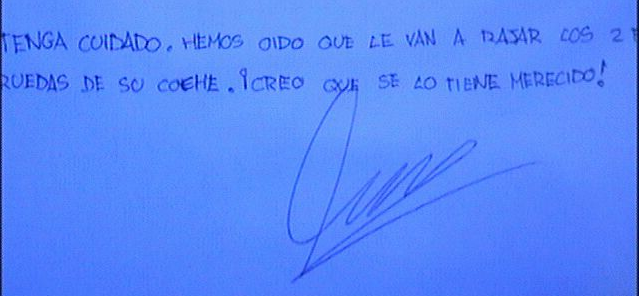 TENGA CUIDADO. HEMOS OIDO QUE LE VAN A RAJAR LOS 2
RUEDAS DE SU COCHE. ¡CREO QUE SE LO TIENE MERECIDO!